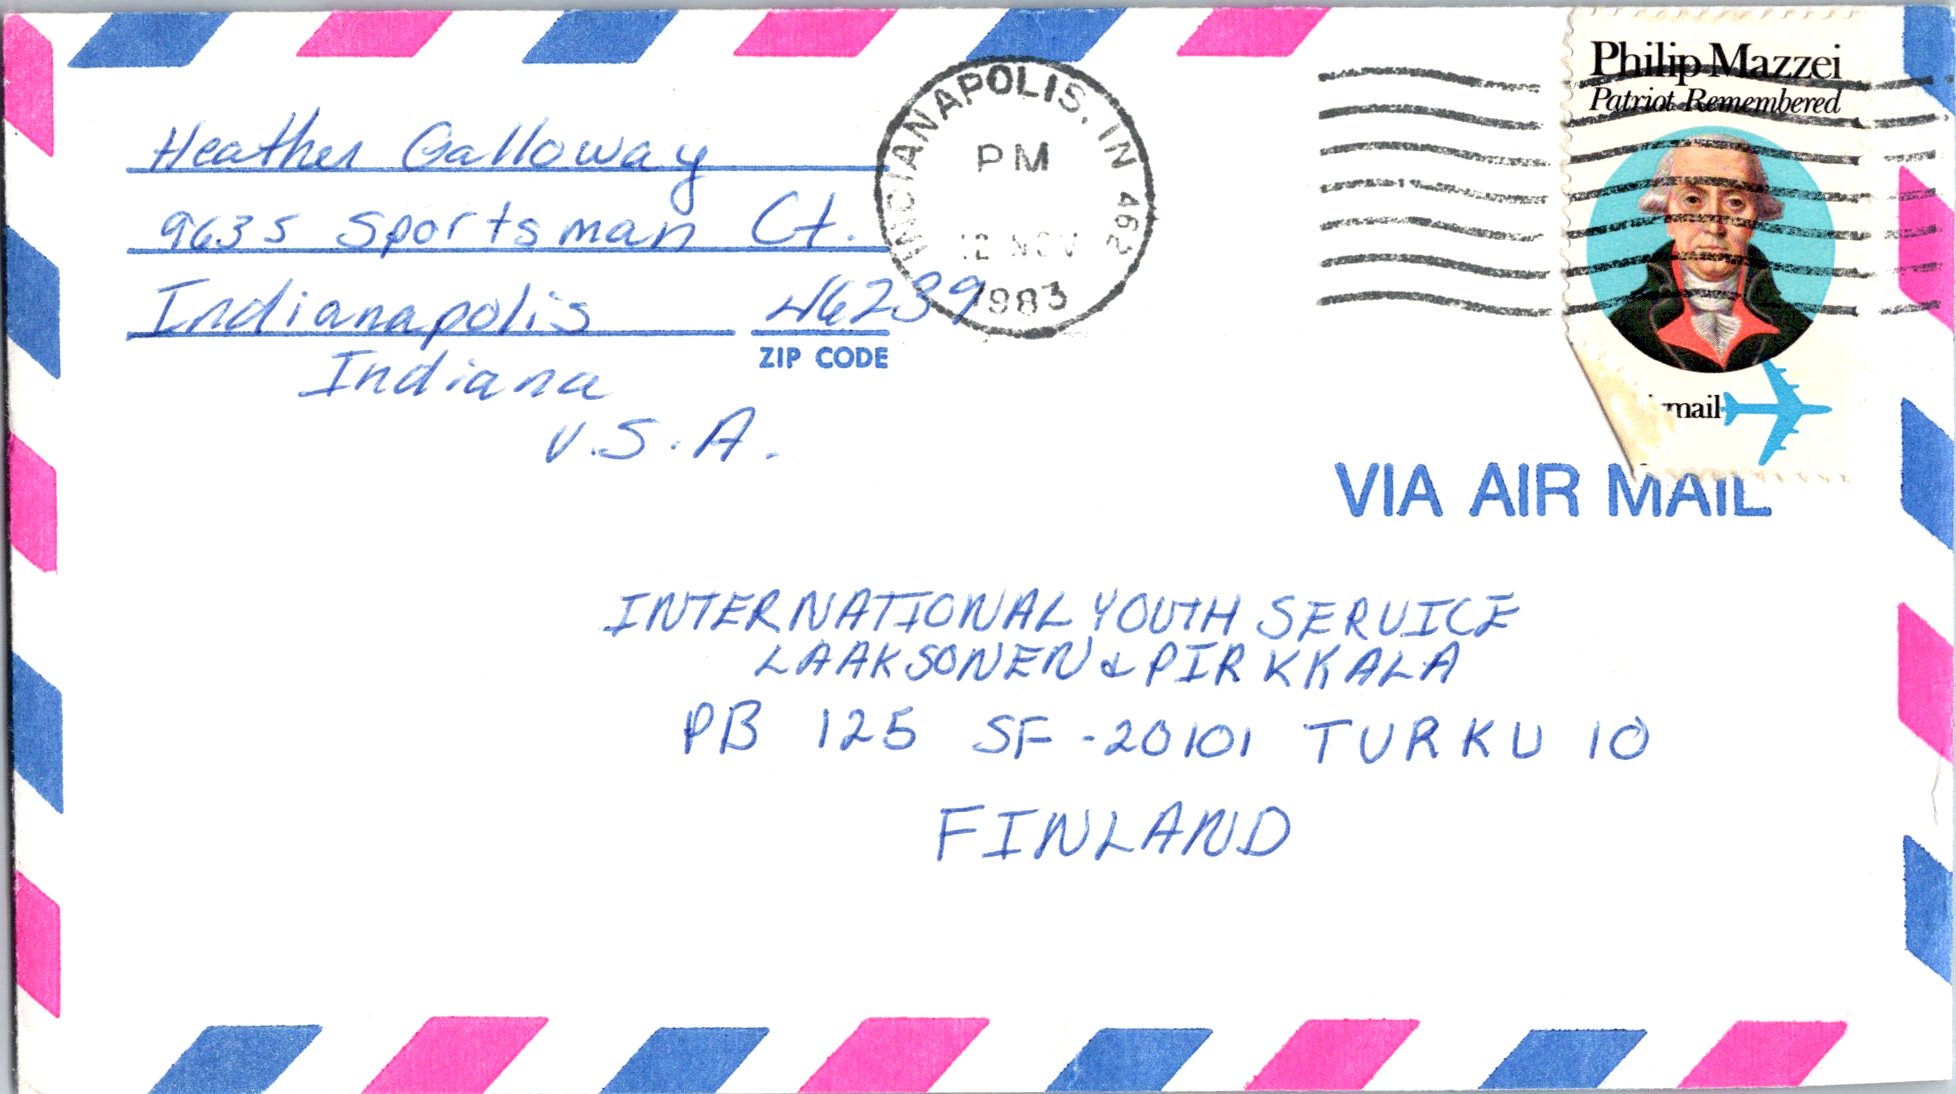 Heather Galloway
9635 Sportsman Ct.
Indianapolis 46239
ZIP CODE
Indiana
U.S.A.
INDIANAPOLIS, IN 462
PM
12 NOV
1983
Philip Mazzei
Patriot Remembered
mail
VIA AIR MAIL
INTERNATIONAL YOUTH SERVICE
LAAKSONEN & PIRKKALA
PB 125 SF-20101 TURKU 10
FINLAND